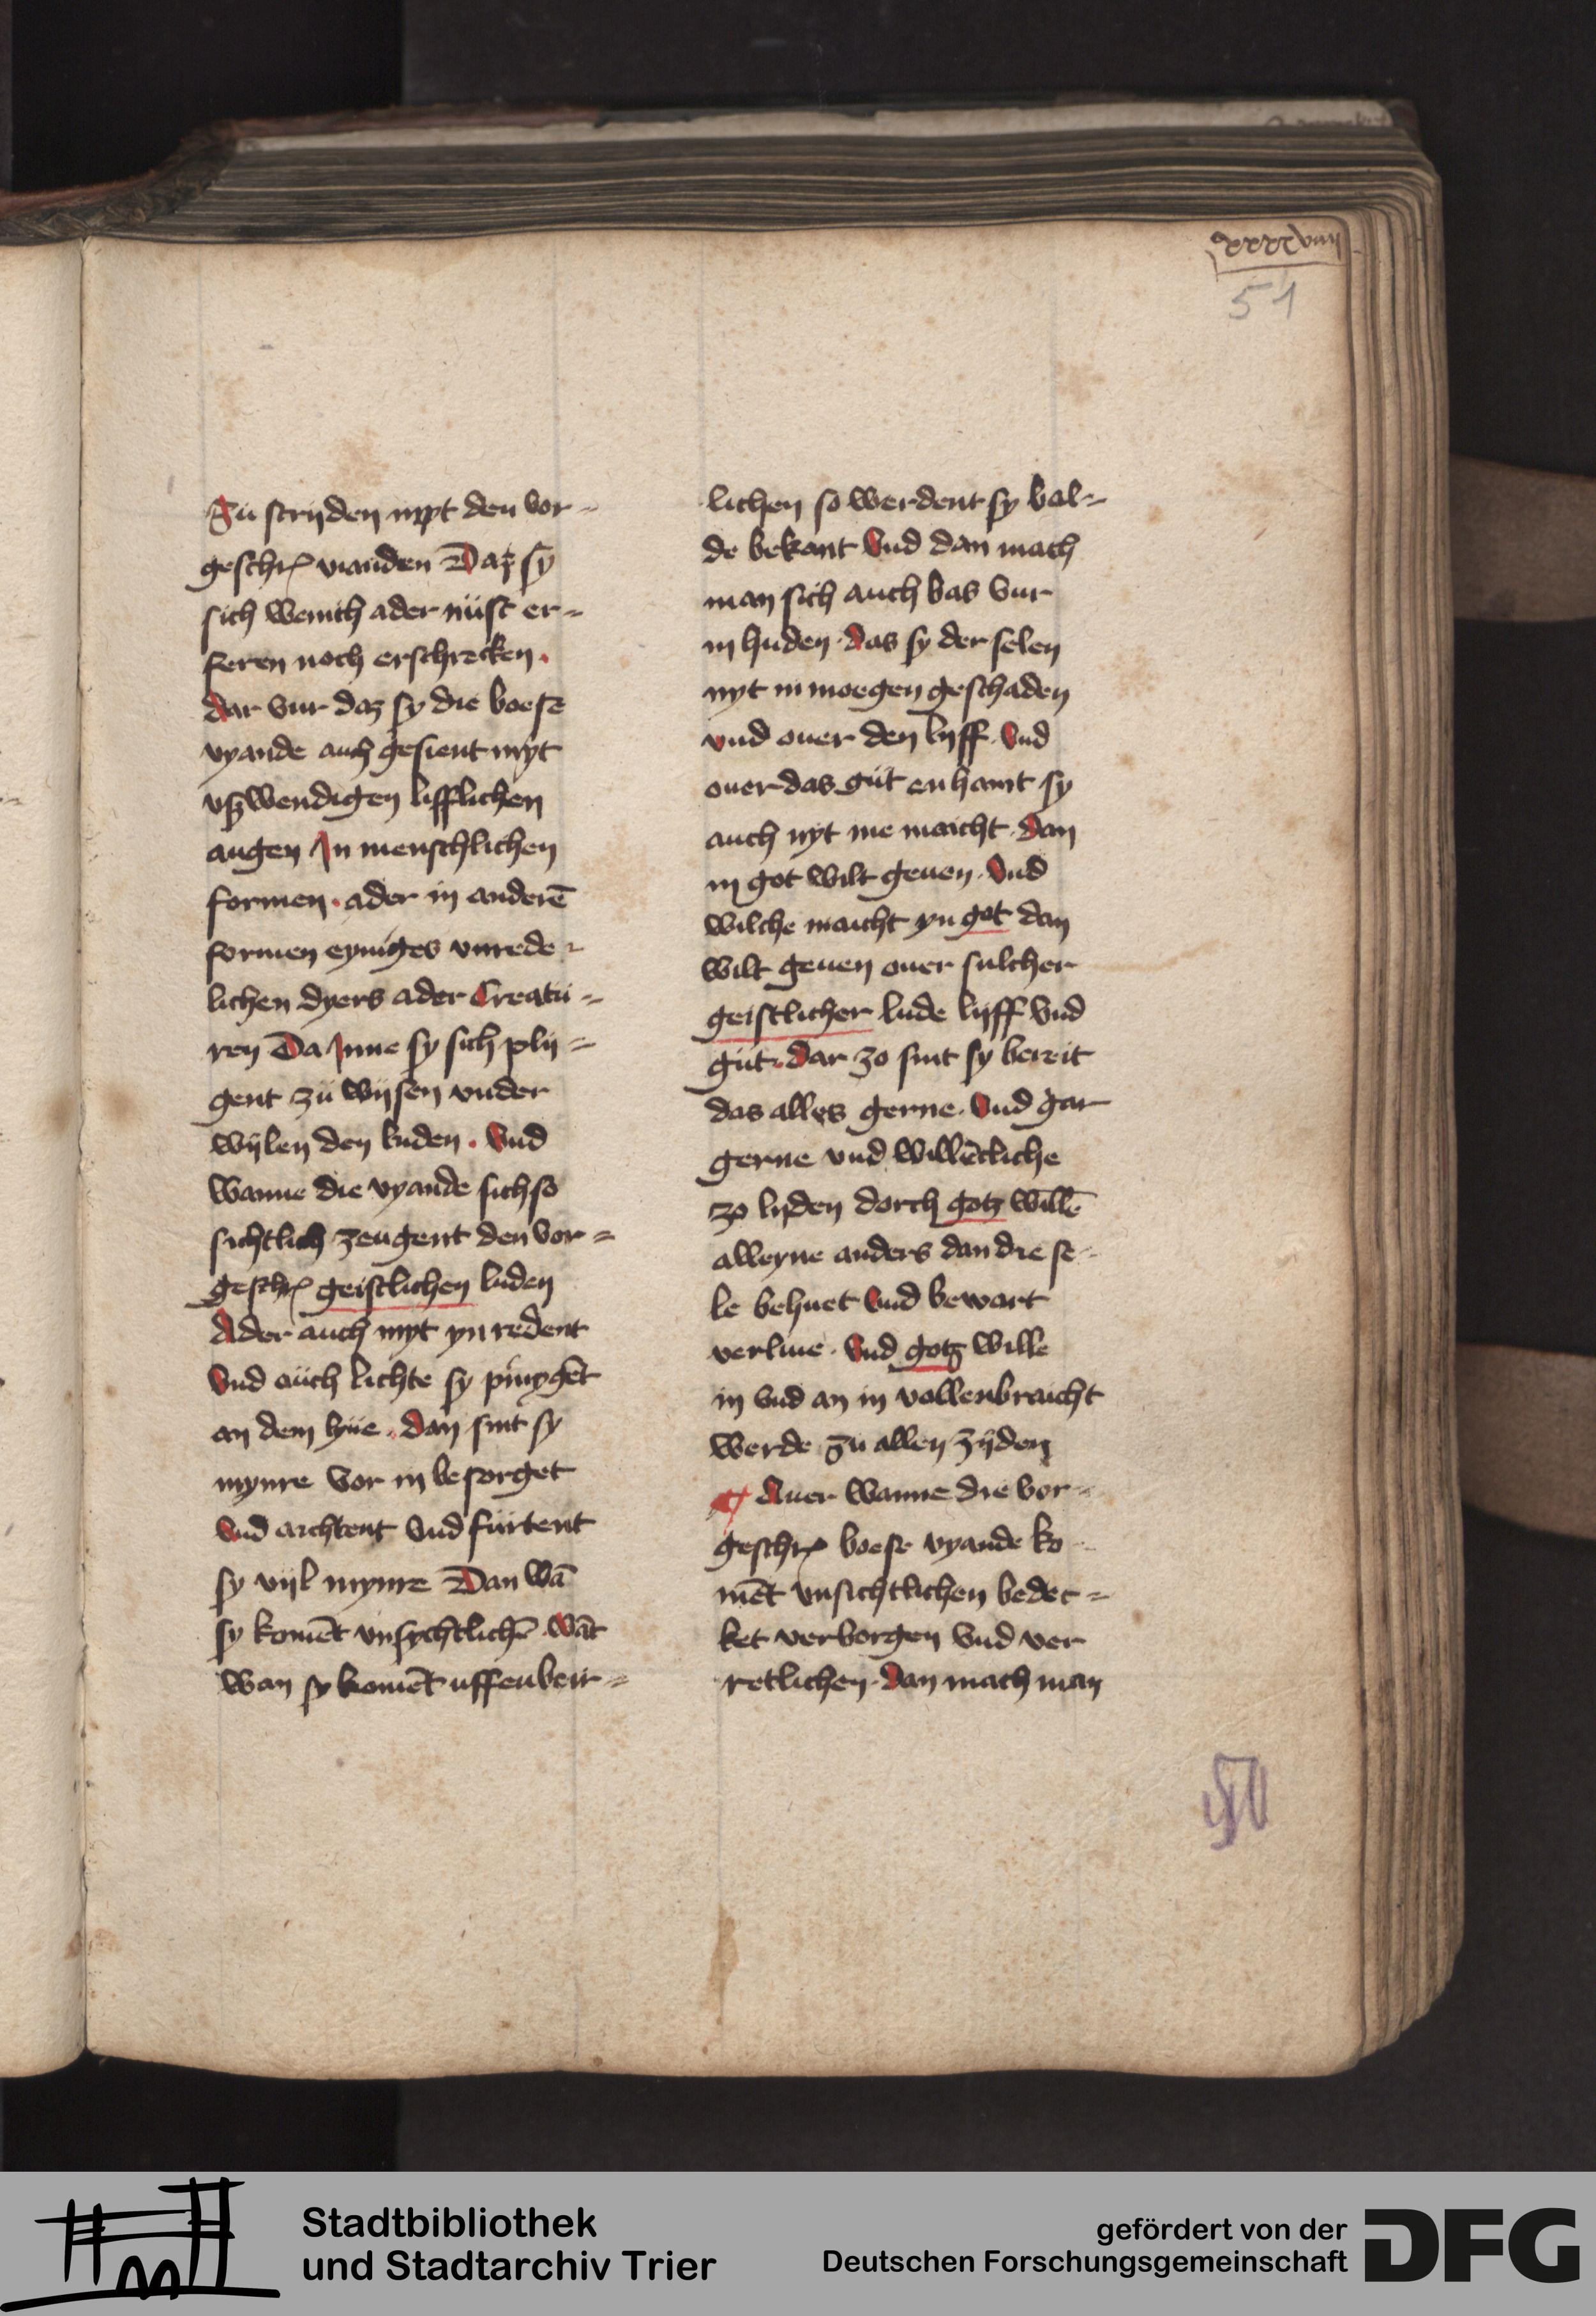 xxxxviiii
51
Zü strijden myt den vor-
geschr vianden Daz sy
sich wenich ader nüst er-
feren noch erschrecken.
dar vur daz sy die boese
vyande auch gesient myt
vßwendigen lifflichen
augen In menschlichen
formen. ader in anderē
formen eyniges vnrede-
lichen dyers ader Creatü-
ren Da Inne sy sich plij-
gent zü wijsen vnder
wijlen den luden. Vnd
wanne die vyande sich so
sichtlich zeugent den vor-
geschr geistlichen luden
Ader auch myt yn redent
Vnd aüch lichte sy pinygēt
an dem lyue. dan sint sy
mynre vor in besorget
Vnd archtent Vnd fürtent
sy vijl mynre Dan wā
sy komēt vnsychtlichē wāt
wan sy komēt uffenbeir-
lichen so werdent sy bal-
de bekant Vnd dan mach
man sich auch bas vur
in huden. das sy der selen
nyt in moegen geschaden
vnd ouer den lijff. Vnd
ouer das güt en hamt sy
auch nyt me maicht. dan
in got wilt geuen. Vnd
wilche maicht yn got dan
wilt geuen ouer sulcher
geistlicher lude lijff Vnd
güt. dar zo sint sy bereit
das alles gerne. Vnd gar
gerne vnd willēcliche
zo lijden dorch gotz willē
alleyne anders dan die se-
le behuet Vnd bewart
verliue. Vnd gotz wille
in vnd an in vollenbraicht
werde zu allen zijden
Auer wanne die vor-
geschr boese vyande ko-
mēt vnsichtlichen bedec-
ket verborgen Vnd ver
retlichen. dan mach man
Stadtbibliothek
und Stadtarchiv Trier
gefördert von der
Deutschen Forschungsgemeinschaft
DFG